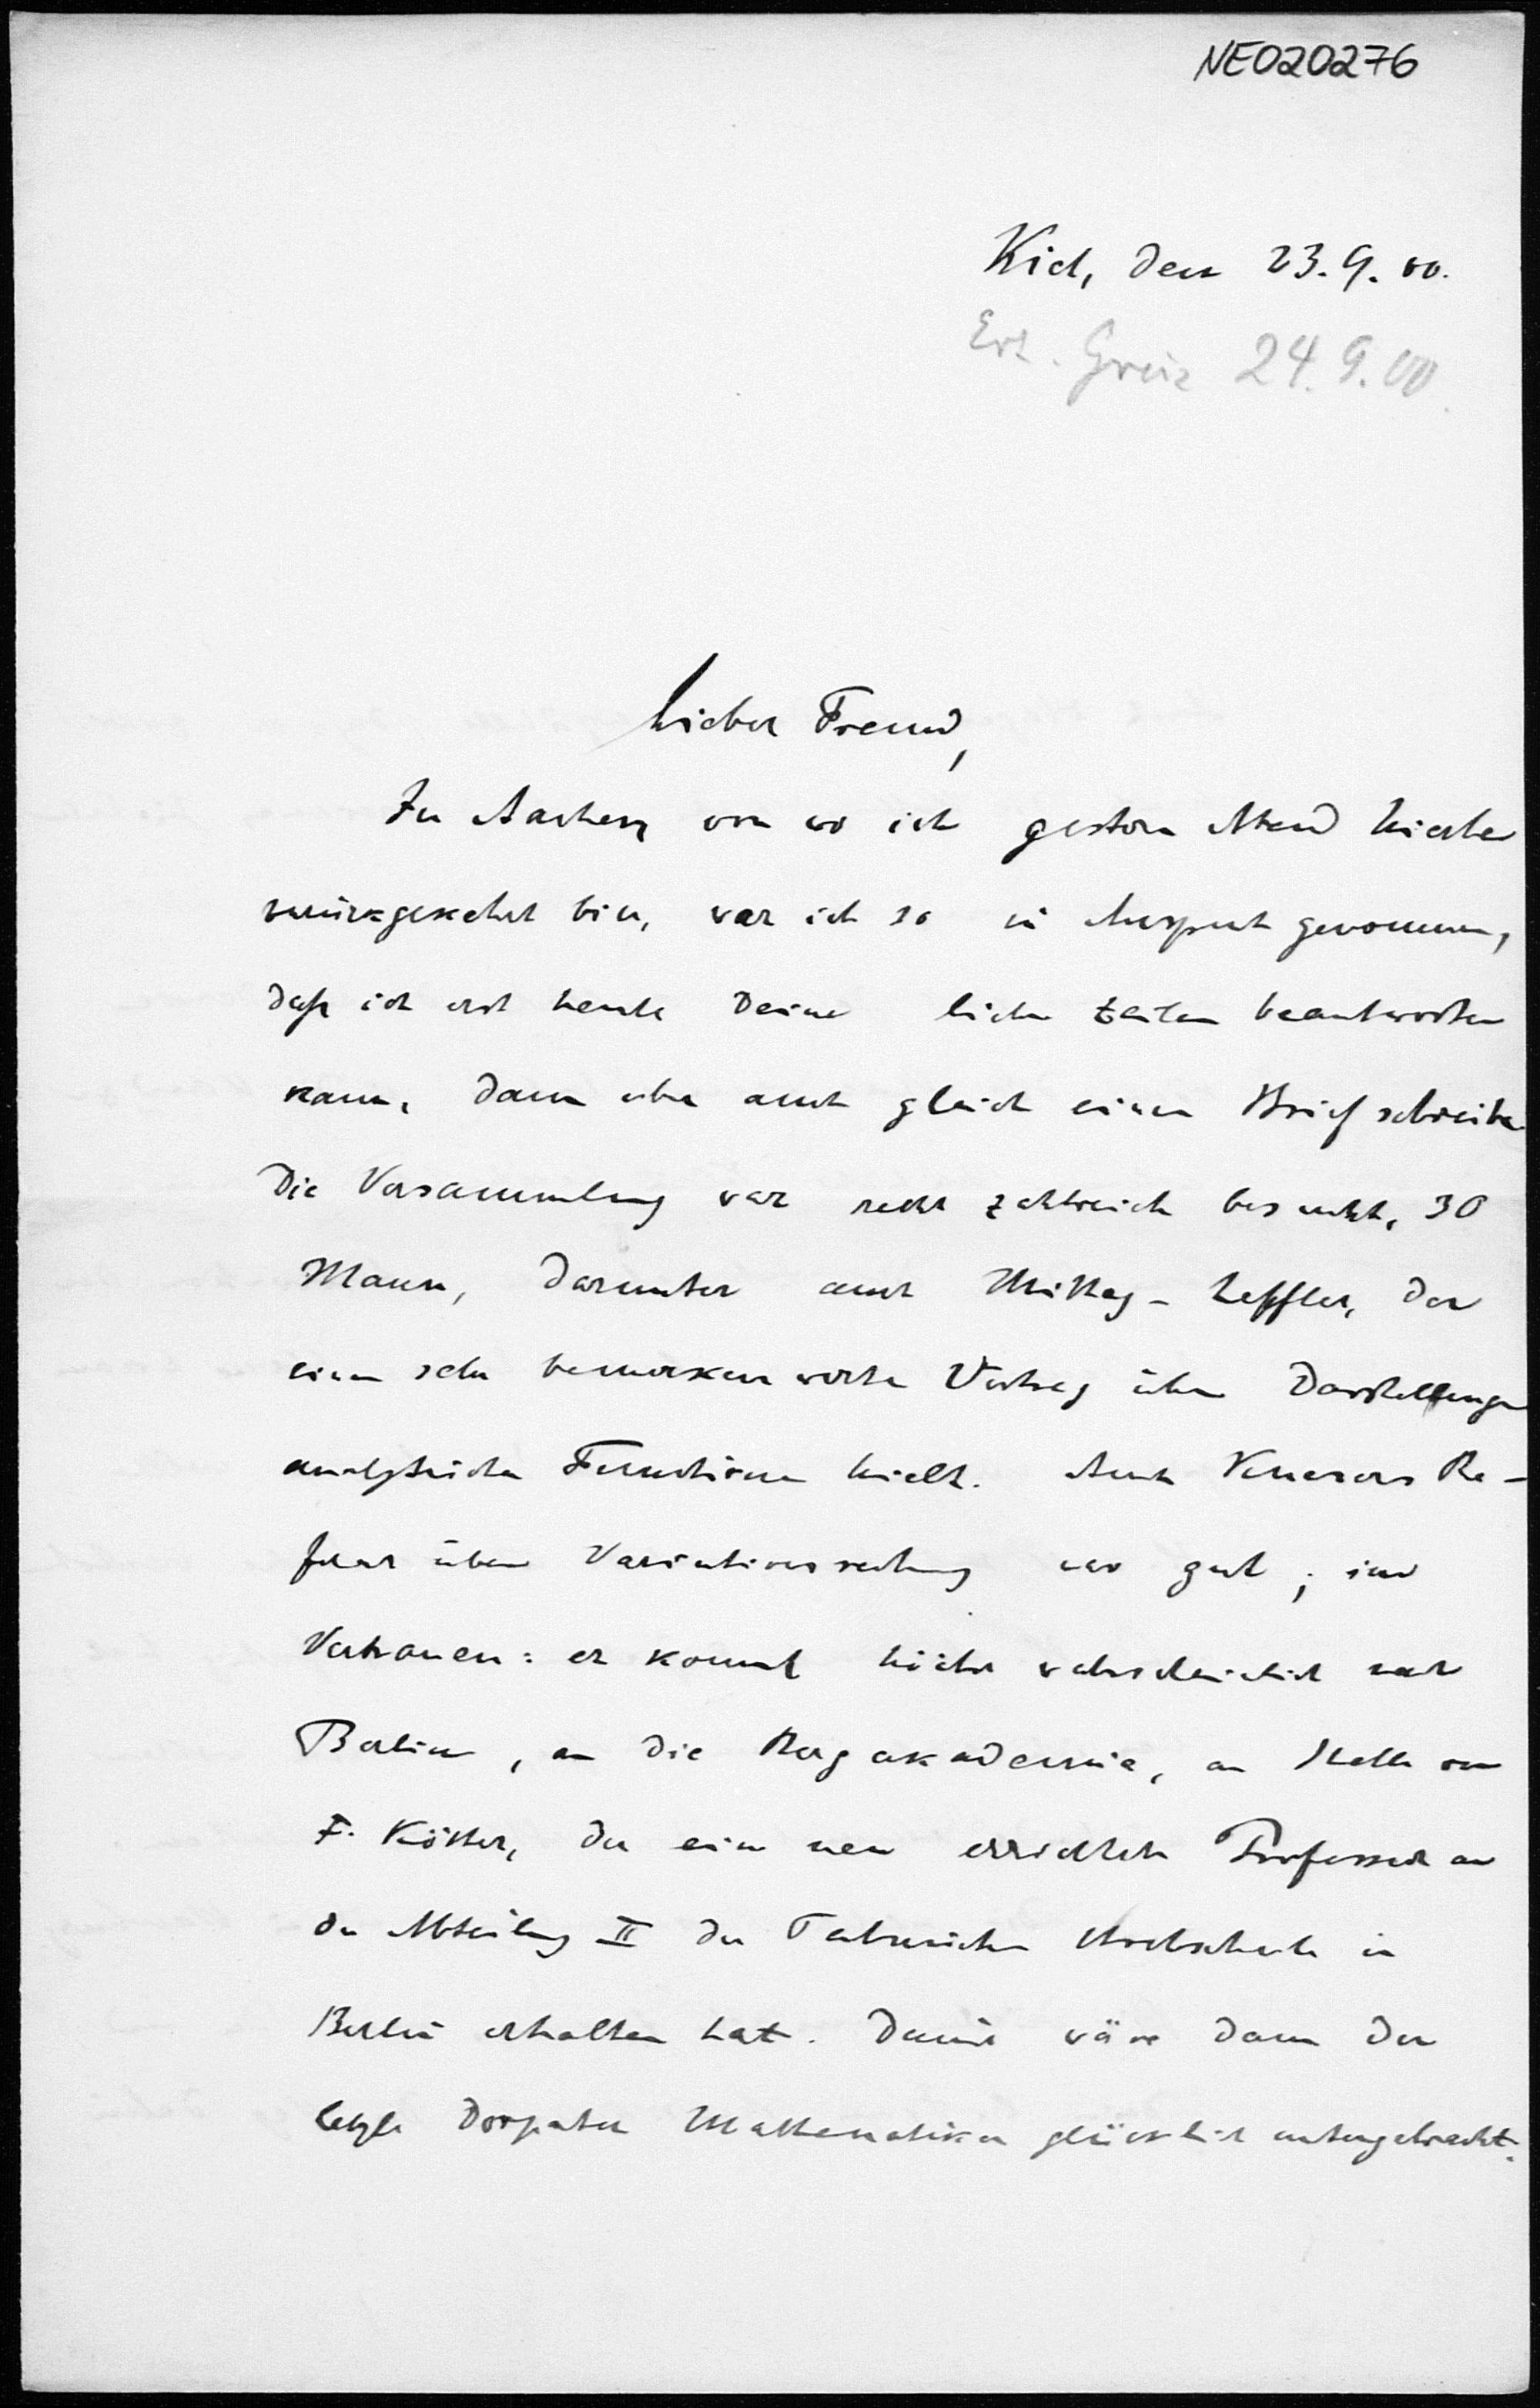 NE020276
Kiel, den 23. 9. 00.
Erh. Greiz 24. 9. 00.
Lieber Freund,
In Aachen von wo ich gestern Abend hierher
zurückgekehrt bin, war ich so in Anspruch genommen,
daß ich erst heute Deine lieben Zeilen beantworten
kann, dann aber auch gleich einen Brief schreibe
Die Versammlung war recht zahlreich besucht, 30
Mann, darunter auch Mittag-Leffler, der
einen sehr bemerkenswerten Vortrag über Darstellungen
analytischer Functionen hielt. Auch Knesers Re-
ferat über Variationsrechnung war gut; im
Vertrauen: er kommt höchst wahrscheinlich nach
Berlin, an die Bergakademie, an Stelle von
F. Kötter, der eine neu errichtete Professur an
der Abteilung II der Technischen Hochschule in
Berlin erhalten hat. Damit wäre dann der
letzte Dorpater Mathematiker glücklich untergebracht.